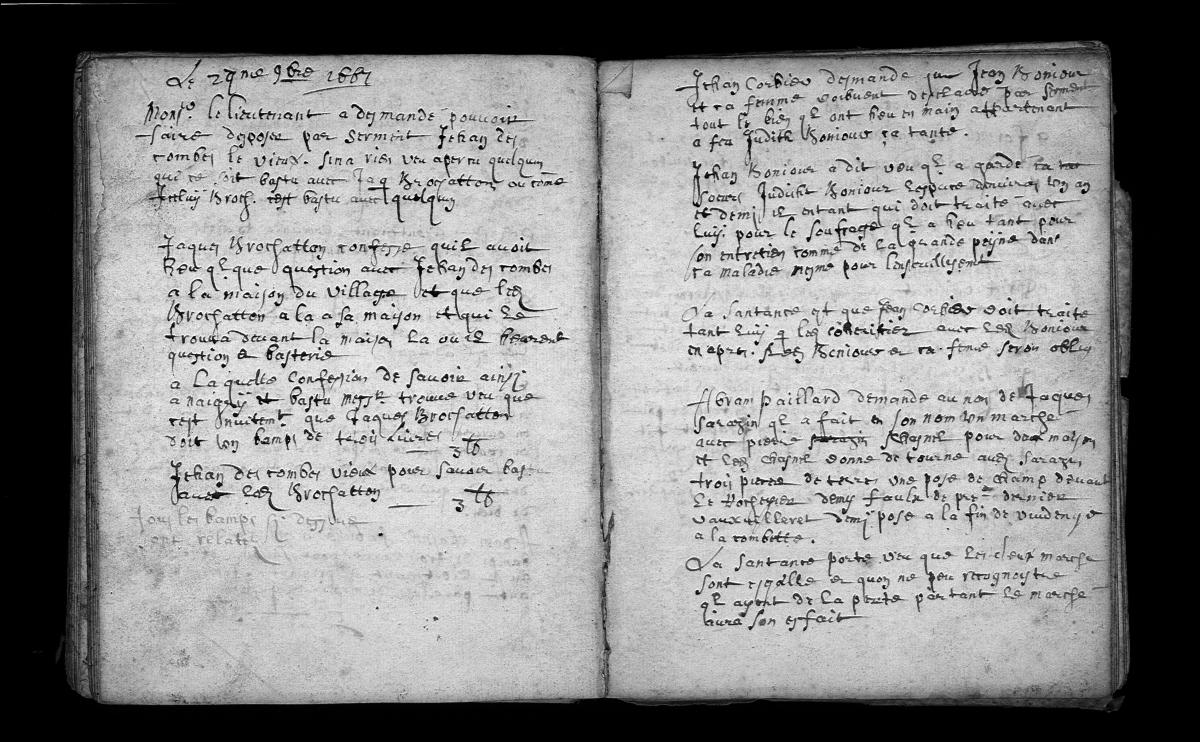 Le 29me 9bre 1661
Monsr. le lieutenant a desmandé pouvoir
faire deposer par serment Jehan des
combes le vieux. sina rien veu apercu quelquun
qui ce soit bastu avec Jaq Brochatton ou come
Icelluy Broch. cest bastu avec quelqun
Jaques Brochatton confesse quil avoit
heu ql que question avec Jehan des combes
a la maison du village et que led
Brochatton a la a sa maison et qui le
trouva devant la maison la ou il heurent
question et basterie
a la quelle confession de savoir ainsi
et bastu trouve veu que
cest que Jaques Brochatton
doit un bamps de trois livres 3 lb
Jehan des combes vieux pour savoir bastu
avec led Brochatton 3 lb
Tous les bamps si dessus
ont relates
Jehan Corbier desmande que Jean Bonjour
et ca femme declaire par serment
tout le bien ql ont heu en main appartenant
a feu Judith Bonjour ca tante.
Jehan Bonjour a dit veu ql a garde ca
soeurs Judith Bonjour lespace denviron un an
et demi il entant qui doit traité avec
luy. pour le soufrage ql a heu tant pour
son entretien comme de la grande peyne dans
ca maladie mesme pour lensevillisement
La santance est que Jean Corbier doit traité
tant luy q les coheritier avec led Bonjour
en apres. Led Bonjour et ca feme seron oblig
Abram Paillard demande au non de Jaques
Sarazin ql a fait en son nom un marche
avec pierre sarazin Chasnel pour deux maison
et led Chasnel donne de tourne aud Sarazin
trois piece de terres une pose de champ devant
le Rocheyer demy faulx de pre dernier
vauxvilleret demj pose a la fin de
a la combette.
La santance porte veu que les deux marche
sont esgalle et quon ne peu recognoistre
ql ayent de la perte partant le marche
aura son esfait